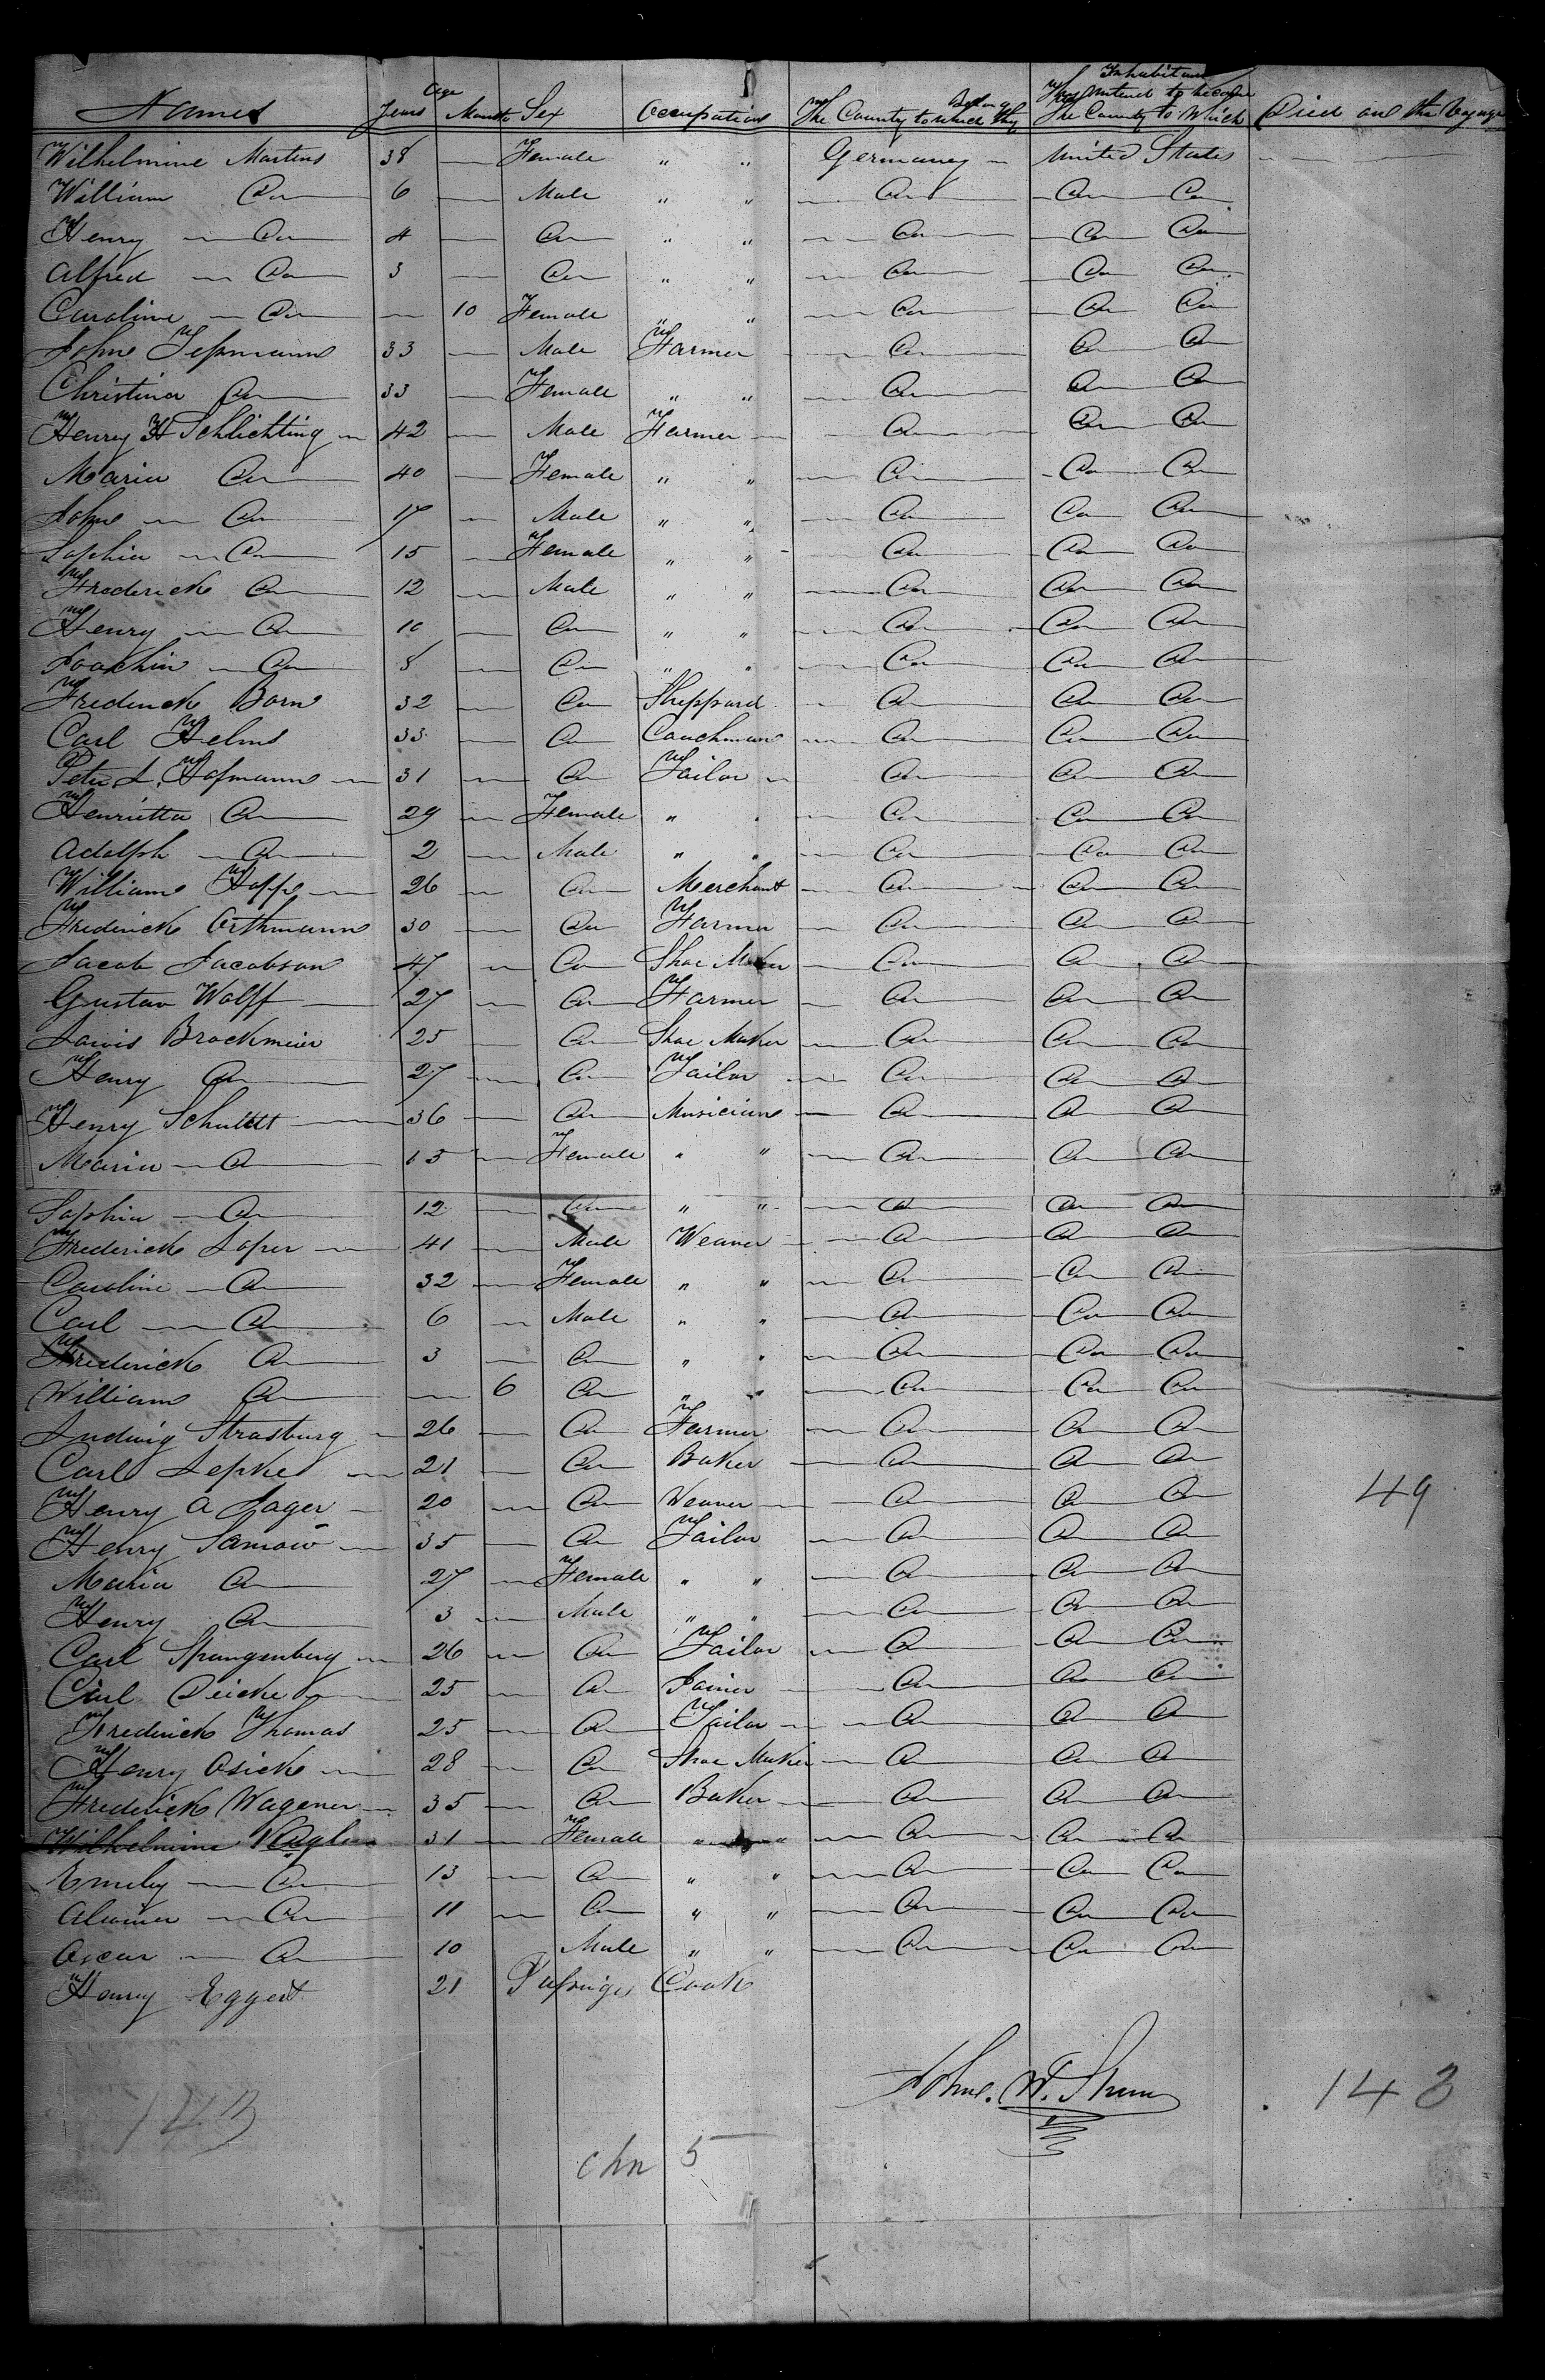 Names Age Years Months Sex Occupation The Country to which they Belong The Country to Which They intend to become Inhabitants Died on the Voyage
Wilhelmine Martens 38 — Female " " Germany — United States — — —
William Do 6 — Male " " — Do — Do Do
Henry — Do 4 — Do " " — Do — Do Do
Alfred — Do 3 — Do " " — Do — Do Do
Caroline — Do — 10 Female " " — Do — Do Do
John Tessmann 33 — Male Farmer — Do — Do Do
Christina Do 33 — Female " " Do — Do Do
Henry H Schlichting — 42 — Male Farmer — Do — Do Do
Maria Do 40 — Female " " — Do — Do Do
John — Do 17 — Male " " — Do — Do Do
Sophia — Do 15 — Female " " — Do — Do Do
Frederick Do 12 — Male " " — Do — Do Do
Henry — Do 10 — Do " " — Do — Do Do
Joachim — Do 8 — Do " " — Do — Do Do
Frederick Born 32 — Do Sheppard — Do — Do Do
Carl Helms 33 — Do Coachman — Do — Do Do
Peter L. Hofmann — 31 — Do Tailor — Do — Do Do
Henrietta Do 29 — Female " " — Do — Do Do
Adolph — Do 2 — Male " " — Do — Do Do
William Hoppe — 26 — Do Merchant — Do — Do Do
Frederick Orthmann 30 — Do Farmer — Do — Do Do
Jacob Jacobson 47 — Do Shoe Maker — Do — Do Do
Gustav Wolff — 27 — Do Farmer — Do — Do Do
Lewis Brockmeier 25 — Do Shoe Maker — Do — Do Do
Henry Do 27 — Do Tailor — Do — Do Do
Henry Schuldt — 36 — Do Musician — Do — Do Do
Maria — Do 15 — Female " " — Do — Do Do
Sophia — Do 12 — Do " " — Do — Do Do
Frederick Loper — 41 — Male Weaver — Do — Do Do
Caroline — Do 32 — Female " " — Do — Do Do
Carl — Do 6 — Male " " — Do — Do Do
Frederick Do 3 — Do " " — Do — Do Do
William Do — 6 Do " " — Do — Do Do
Ludwig Strasburg — 26 — Do Farmer — Do — Do Do
Carl Lepke — 21 — Do Baker — Do — Do Do
Henry A Jager — 20 — Do Weaver — Do — Do Do 49
Henry Samow — 35 — Do Tailor — Do — Do Do
Maria Do 27 — Female " " — Do — Do Do
Henry Do 3 — Male " " — Do — Do Do
Carl Spangenberg — 26 — Do Tailor — Do — Do Do
Carl Deicke — 25 — Do Joiner — Do — Do Do
Frederick Thomas 25 — Do Tailor — Do — Do Do
Henry Osick — 28 — Do Shoe Maker — Do — Do Do
Frederick Wagener — 35 — Do Baker — Do — Do Do
Wilhelmine 31 — Female " " — Do — Do Do
Emily — Do 13 — Do " " — Do — Do Do
Alwina — Do 11 — Do " " — Do — Do Do
Oscar — Do 10 Male " " — Do — Do Do
Henry Eggert 21 Passinger Cook
John. W.
143
148
chn 5